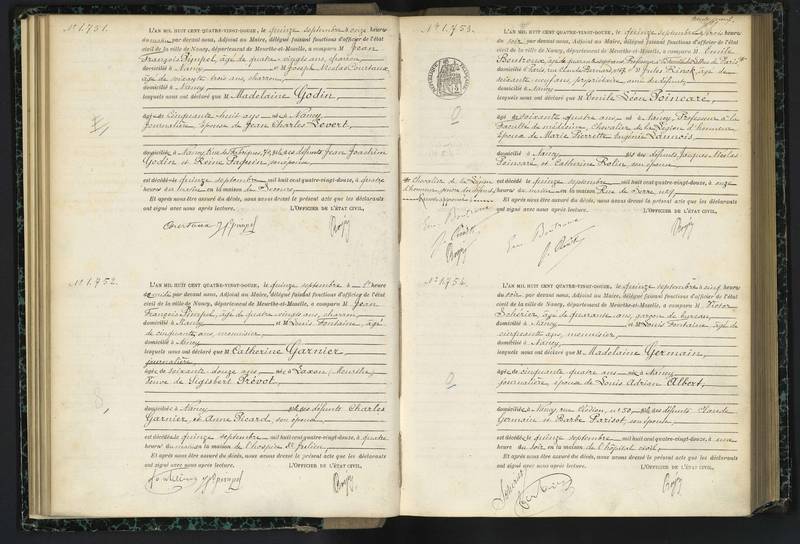 N° 1.751.
L'AN MIL HUIT CENT QUATRE-VINGT-DOUZE, le quinze septembre à onze heures
du matin par devant nous, Adjoint au Maire, délégué faisant fonctions d'officier de l'état
civil de la ville de Nancy, département de Meurthe-et-Moselle, a comparu M Jean
François Pimpel, âgé de quatre vingts ans, charron,
domicilié à Nancy et M Joseph Nicolas Courteaux
âgé de soixante trois ans, charron,
domicilié à Nancy
lesquels nous ont déclaré que M Madelaine Godin,
âgée de cinquante huit ans née à Nancy
journalière, épouse de Jean Charles Levert,
domiciliée à Nancy, fille des défunts Jean Joachim
Godin et Reine Paquin, son épouse
est décédée le quinze septembre mil huit cent quatre-vingt-douze, à quatre
heures du matin en la maison de Secours,
Et après nous être assuré du décès, nous avons dressé le présent acte que les déclarants
ont signé avec nous après lecture. L'OFFICIER DE L'ÉTAT CIVIL,
N° 1.752.
L'AN MIL HUIT CENT QUATRE-VINGT-DOUZE, le quinze septembre à heures
par devant nous, Adjoint au Maire, délégué faisant fonctions d'officier de l'état
civil de la ville de Nancy, département de Meurthe-et-Moselle, a comparu M Jean
François Pimpel, âgé de quatre vingts ans, charron,
domicilié à Nancy et M Louis Fontaine, âgé
de cinquante ans, menuisier,
domicilié à Nancy
lesquels nous ont déclaré que M Catherine Garnier
journalière,
âgée de soixante douze ans née à Laxou (Meurthe)
Veuve de Sigisbert Prévot,
domiciliée à Nancy fille des défunts Charles
Garnier, et Anne Ricard, son épouse
est décédée le quinze septembre mil huit cent quatre-vingt-douze, à quatre
heures du matin en la maison de l'hospice St Julien,
Et après nous être assuré du décès, nous avons dressé le présent acte que les déclarants
ont signé avec nous après lecture. L'OFFICIER DE L'ÉTAT CIVIL,
N° 1.753.
L'AN MIL HUIT CENT QUATRE-VINGT-DOUZE, le quinze septembre à trois heures
du soir par devant nous, Adjoint au Maire, délégué faisant fonctions d'officier de l'état
civil de la ville de Nancy, département de Meurthe-et-Moselle, a comparu M Emile
Boutroux, âgé de quarante sept ans, Professeur à la Faculté des Lettres de Paris
domicilié à Paris, rue Claude Bernard, et M Jules Rinck, âgé de
soixante neuf ans, propriétaire, ami du défunt,
domicilié à Nancy
lesquels nous ont déclaré que M Emile Léon Poincaré,
âgé de soixante quatre ans né à Nancy, Professeur à la
Faculté de médecine, Chevalier de la Légion d'honneur,
époux de Marie Pierrette Eugénie Launois,
domicilié à Nancy fils des défunts Jacques Nicolas
Poincaré et Catherine Rolin, son épouse
est décédé le quinze septembre mil huit cent quatre-vingt-douze, à onze
heures du matin en la maison Rue de Serre, n° 9
Et après nous être assuré du décès, nous avons dressé le présent acte que les déclarants
ont signé avec nous après lecture. L'OFFICIER DE L'ÉTAT CIVIL,
* Chevalier de la Légion
d'honneur, gendre du défunt,
Renvoi approuvé.
Em. Boutroux
J. Rinck
Em. Boutroux
J. Rinck
N° 1.754.
L'AN MIL HUIT CENT QUATRE-VINGT-DOUZE, le quinze septembre à cinq heures
du soir par devant nous, Adjoint au Maire, délégué faisant fonctions d'officier de l'état
civil de la ville de Nancy, département de Meurthe-et-Moselle, a comparu M Victor
Schérier, âgé de quarante ans, garçon de bureau,
domicilié à Nancy et M Louis Fontaine, âgé de
cinquante ans, menuisier,
domicilié à Nancy,
lesquels nous ont déclaré que M Madelaine Germain,
âgée de cinquante quatre ans née à Nancy
journalière, épouse de Louis Adrien Albert,
domiciliée à Nancy, rue n° 50, fille des défunts Claude
Germain et Barbe Parisot, son épouse
est décédée le quinze septembre mil huit cent quatre-vingt-douze, à une
heure du soir, en la maison de l'hôpital civil,
Et après nous être assuré du décès, nous avons dressé le présent acte que les déclarants
ont signé avec nous après lecture. L'OFFICIER DE L'ÉTAT CIVIL,